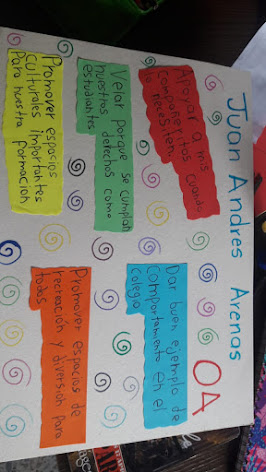 Juan Andres Arenas
04
Apoyar a mis
compañeritos cuando
lo necesiten.
Velar porque se cumplan
nuestros derechos como
estudiantes
Promover espacios
culturales importantes
Para nuestra formacion
Dar buen ejemplo de
comportamiento en el
colegio
Promover espacios de
recreación y diversión para
todos